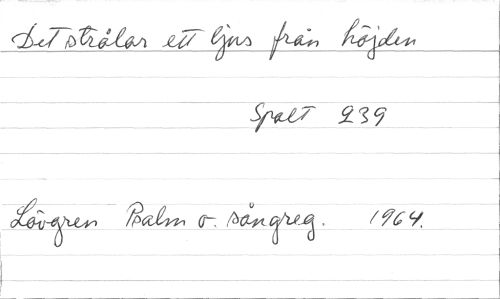 Det strålar ett ljus från höjden
Spalt 239
Lövgren Psalm o. sångreg. 1964.